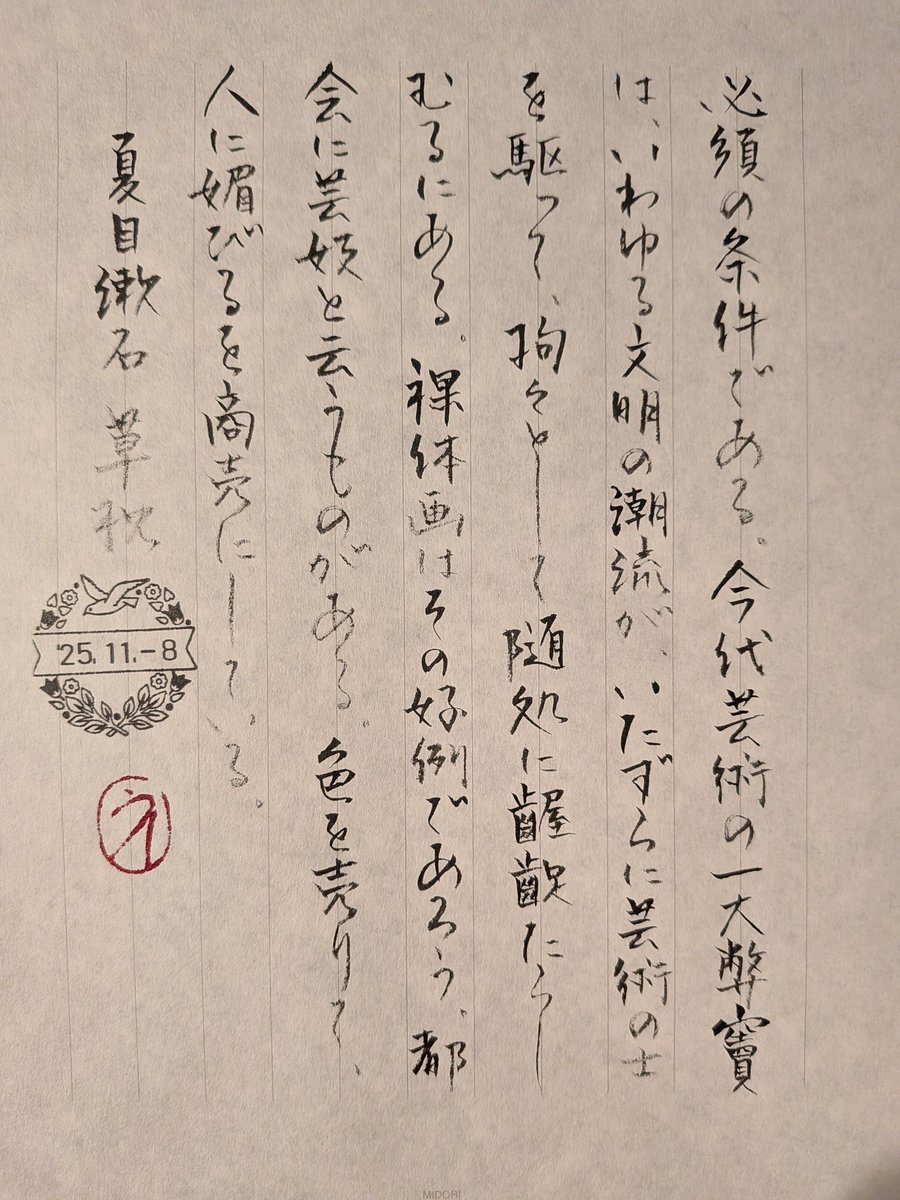 必須の条件である。今代芸術の一大弊竇
は、いわゆる文明の潮流が、いたずらに芸術の士
を駆って、拘々として随処に齷齪たらし
むるにある。裸体画はその好例であろう。都
会に芸妓と云うものがある。色を売りて、
人に媚びるを商売にしている。
夏目漱石 草枕
'25.11.-8
MIDORI